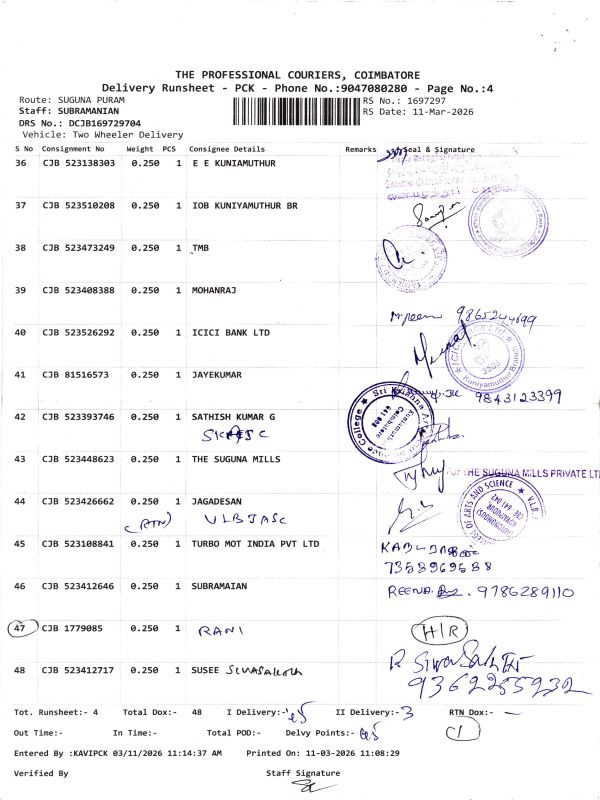 THE PROFESSIONAL COURIERS, COIMBATORE
Delivery Runsheet - PCK - Phone No.:9047080280 - Page No.:4
Route: SUGUNA PURAM
RS No.: 1697297
Staff: SUBRAMANIAN
RS Date: 11-Mar-2026
DRS No.: DCJB169729704
Vehicle: Two Wheeler Delivery
S No Consignment No Weight PCS Consignee Details Remarks Seal & Signature
36 CJB 523138303 0.250 1 E E KUNIAMUTHUR
37 CJB 523510208 0.250 1 IOB KUNIYAMUTHUR BR
38 CJB 523473249 0.250 1 TMB
39 CJB 523408388 0.250 1 MOHANRAJ
9865244699
40 CJB 523526292 0.250 1 ICICI BANK LTD
ICICI BANK Ltd
3506
Kuniyamuthur Branch
41 CJB 81516573 0.250 1 JAYEKUMAR
9843123399
42 CJB 523393746 0.250 1 SATHISH KUMAR G
SKASC
Sri Krishna Arts Science College
Kuniamuth
Coimbatore
641 008
43 CJB 523448623 0.250 1 THE SUGUNA MILLS
For THE SUGUNA MILLS PRIVATE LT
44 CJB 523426662 0.250 1 JAGADESAN
(RTN) VLBJASC
OF ARTS AND SCIENCE
V.L.B.
45 CJB 523108841 0.250 1 TURBO MOT INDIA PVT LTD
7358969588
46 CJB 523412646 0.250 1 SUBRAMAIAN
REENA. 9786289110
47 CJB 1779085 0.250 1 RANI
H/R
48 CJB 523412717 0.250 1 SUSEE SIVASAKTHI
R Siva Sakthi
9362255932
Tot. Runsheet:- 4 Total Dox:- 48 I Delivery:- 45 II Delivery:- 3 RTN Dox:- —
Out Time:- In Time:- Total POD:- Delvy Points:- 45 1
Entered By :KAVIPCK 03/11/2026 11:14:37 AM Printed On: 11-03-2026 11:08:29
Verified By Staff Signature